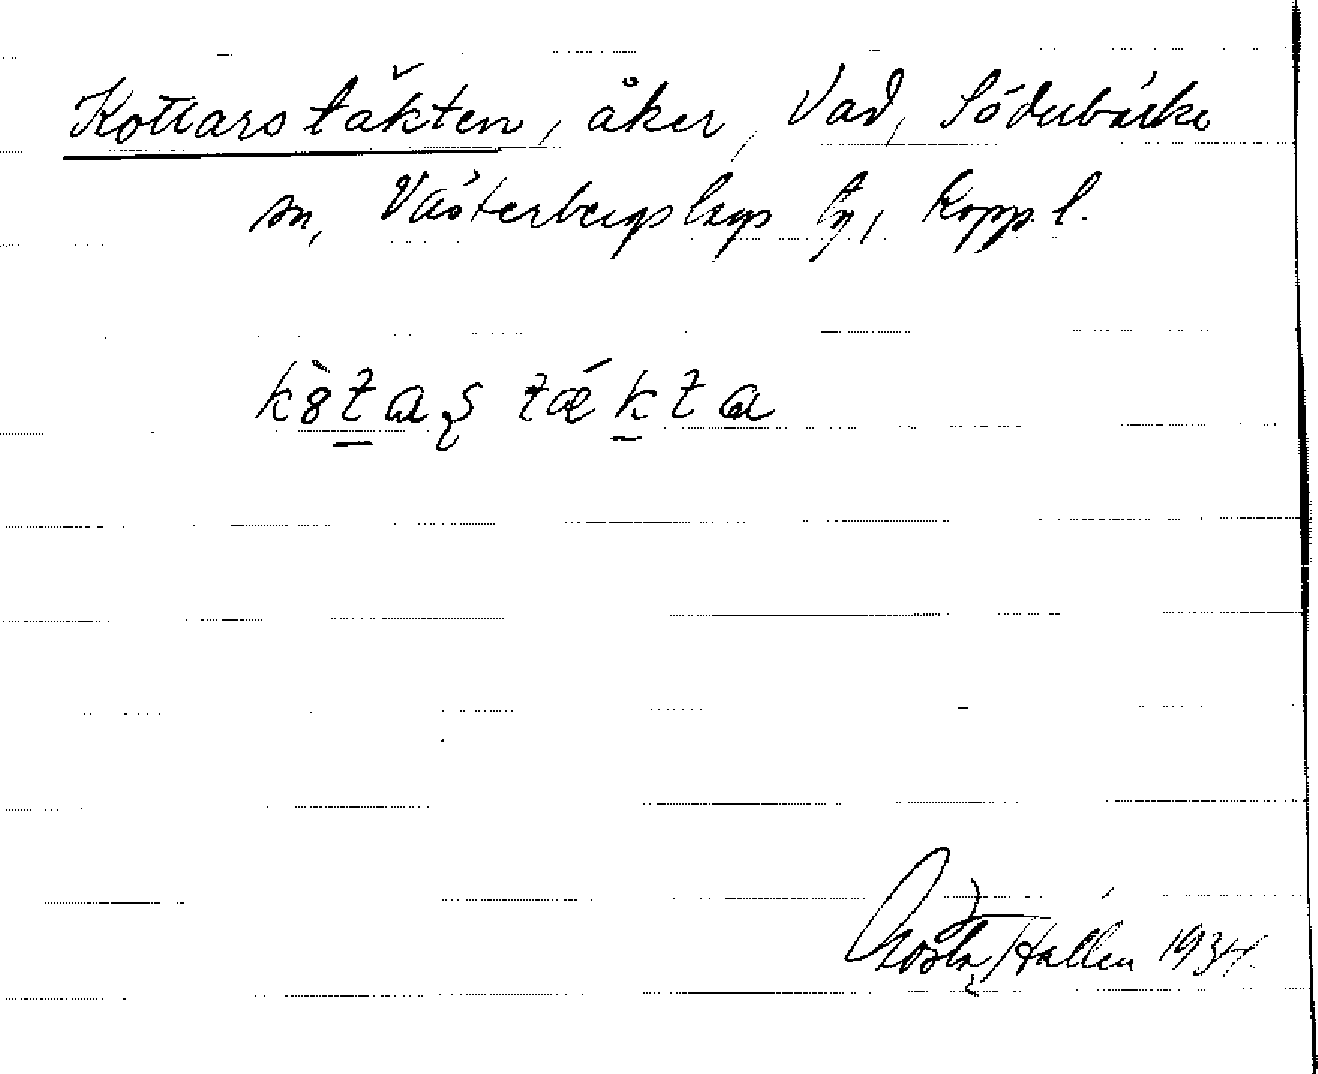 Kottarstäkten, åker, Vad, Söderbärke
sn, Västerbergslags tg, Kopp. l.
kòtaʂ tǽkta
Gösta Hallén 1934.